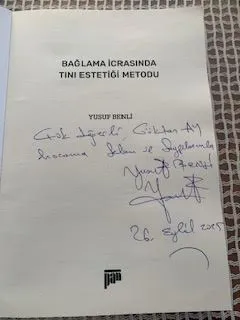 BAĞLAMA İCRASINDA
TINI ESTETİĞİ METODU
YUSUF BENLİ
Çok Değerli Göktan AY
hocama Selam ve Saygılarımla
Yusuf BENLİ
26 Eylül 2025
pan